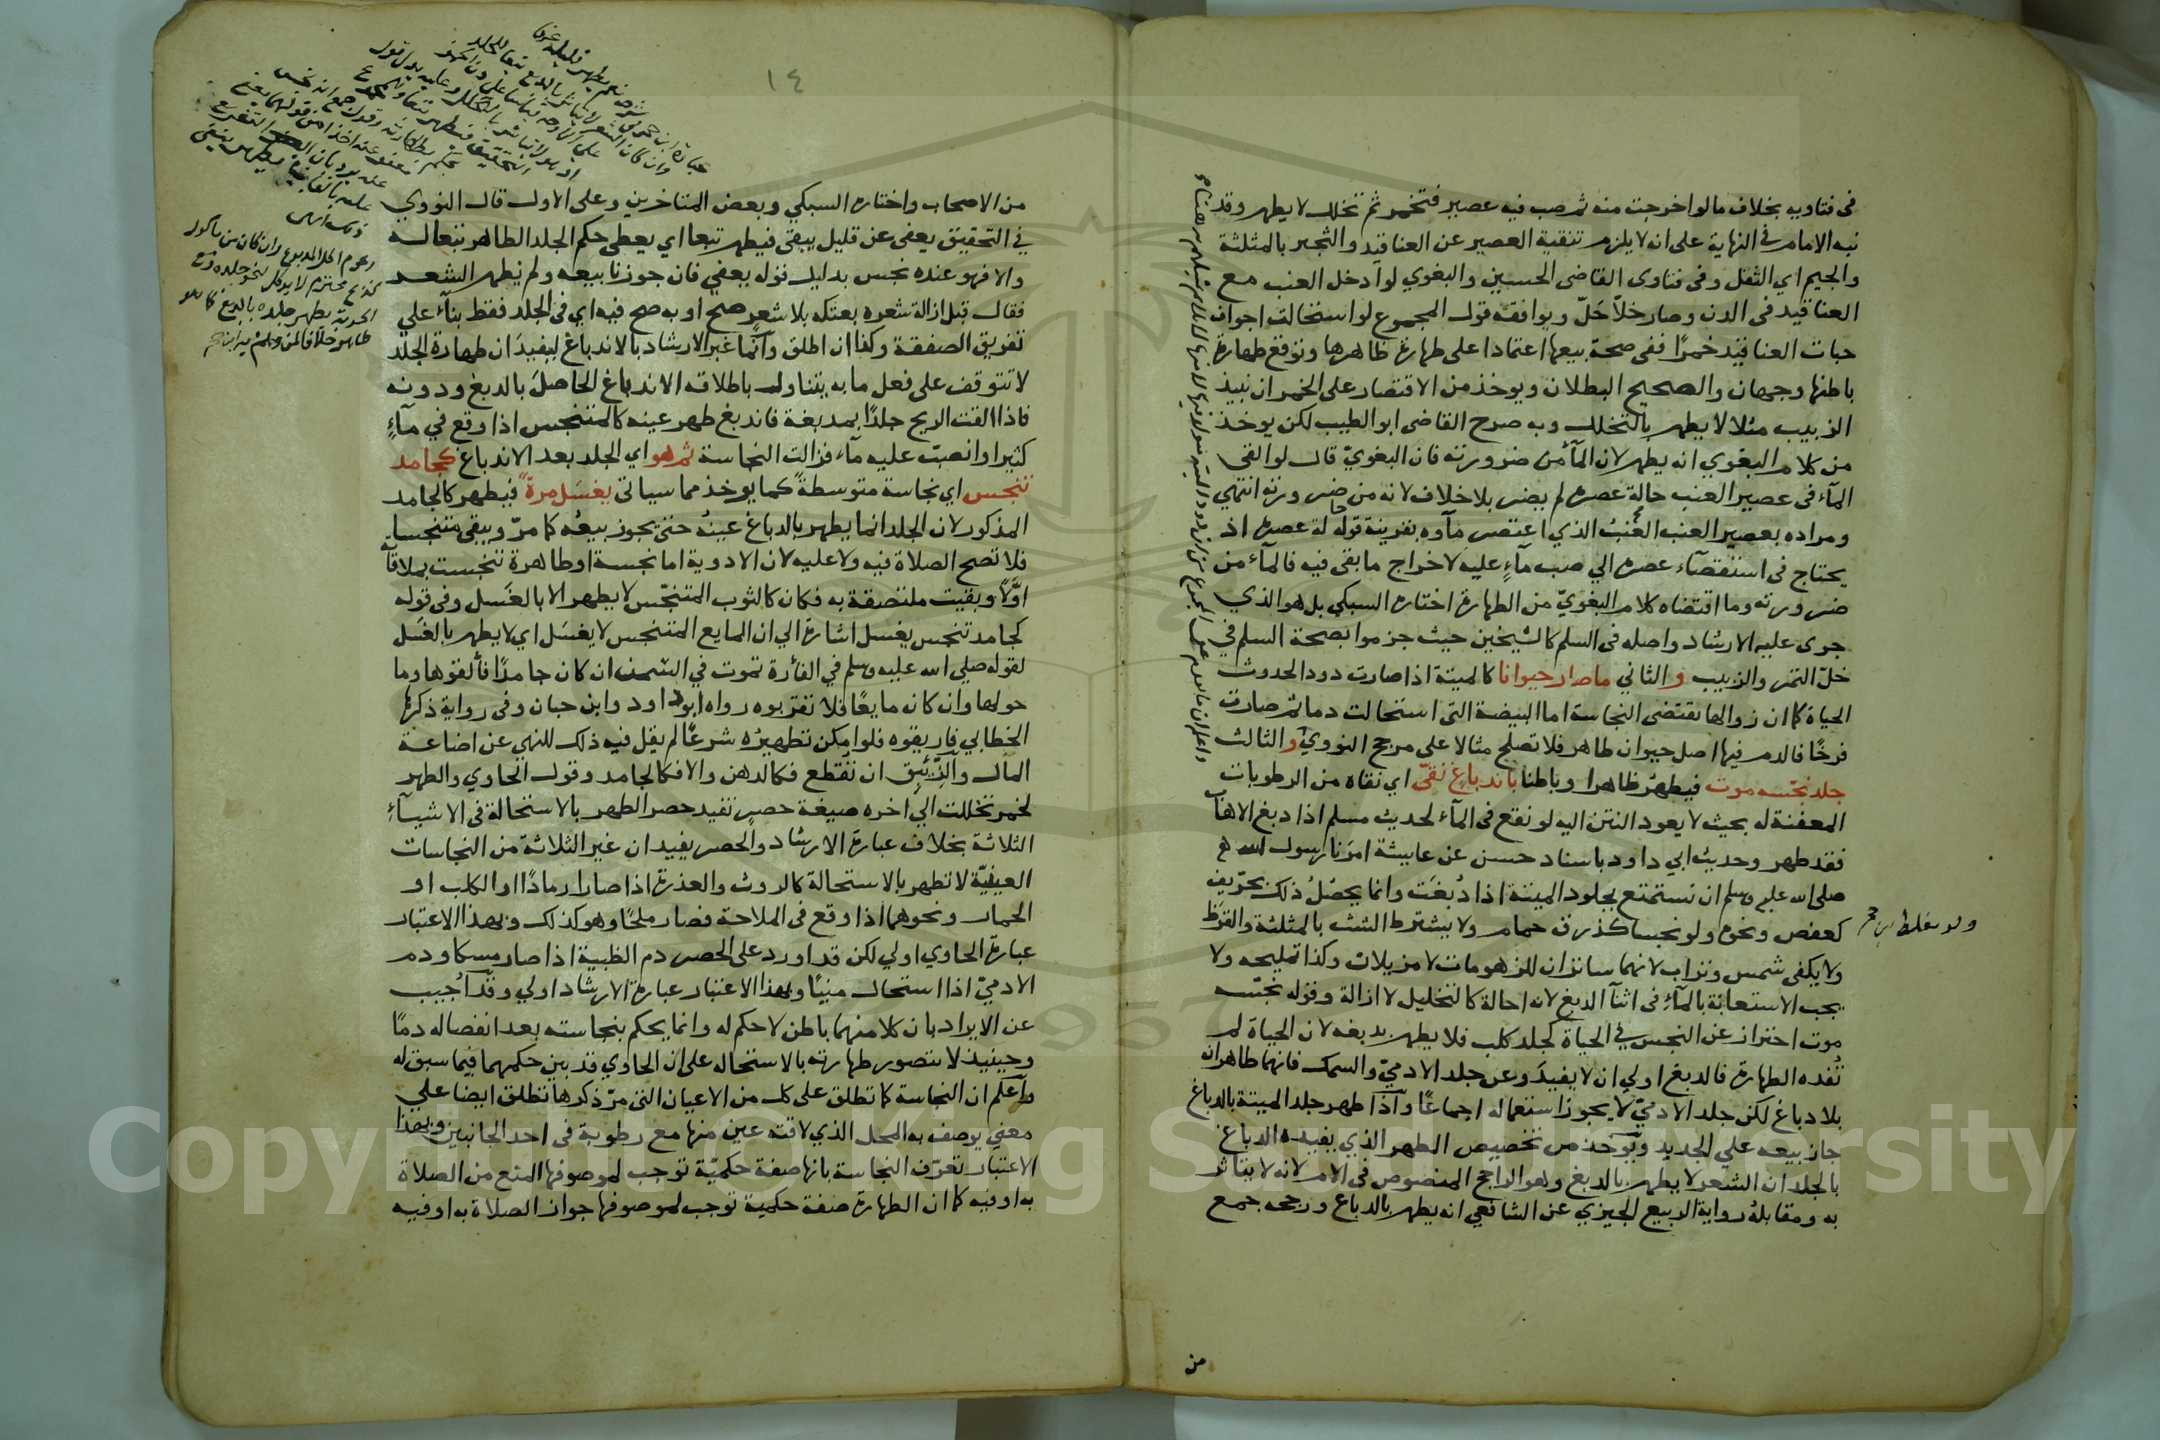 في فتاويه بخلاف مالو اخرجت منه ثم صب فيه عصير فتخمر ثم تخلل لا يطهر وقد
نبه الامام في النهاية على انه لا يلزم تنقية العصير عن العناقيد والثجير بالمثلثة
والجيم اي الثفل وفي فتاوى القاضي الحسين والبغوي لو ادخل العنب مع
العناقيد في الدن وصار خلا حَلّ ويوافقه قول المجموع لو استحالت اجواف
حبات العناقيد خمرًا ففي صحة بيعها اعتمادا على طهارة ظاهرها وتوقع طهارة
باطنها وجهان والصحيح البطلان ويوخذ من الاقتصار على الخمر ان نبيذ
الزبيب مثلا لا يطهر بالتخلل وبه صرح القاضي ابو الطيب لكن يوخذ
من كلام البغوي انه يطهر لان المآ من ضرورته فان البغويّ قال لو القى
المآء في عصير العنب حالة عصره لم يضر بلا خلاف لانه من ضرورته انتهى
ومراده بعصير العنب العنبُ الذي اعتصر مآوه بقرينة قوله حالة عصره اذ
يحتاج في استقصآء عصره الي صب مآءٍ عليه لاخراج ما بقى فيه فالمآء من
ضرورته وما اقتضاه كلام البغويّ من الطهارة اختاره السبكي بل هو الذي
جرى عليه الارشاد واصله في السلم كالشيخين حيث جزموا بصحة السلم في
خلّ التمر والزبيب والثاني ما صار حيوانا كالميتة اذا صارت دودا لحدوث
الحياة كما ان زوالها يقتضى النجاسة اما البيضة التي استحالت دما ثم صارت
فرخًا فالدم فيها اصل حيوان طاهر فلا تصلح مثالا على مرجح النوويّ والثالث
جلد نجّسه موت فيطهر ظاهرا وباطنا باندباغ نقّى اي نقاه من الرطوبات
المعفنة له بحيث لا يعود النتن اليه لو نقع في المآء لحديث مسلم اذا دبغ الاهاب
فقد طهر وحديث ابي داود باسناد حسن عن عايشة امرنا رسول الله
صلى الله عليه وسلم ان نستمتع بجلود الميتة اذا دُبغَت وانما يحصُلُ ذلك بحرّيف
كعفص ونحوه ولو نجسا كذرق حمام ولا يشترط الشث بالمثلثة والقرَظ
ولا يكفى شمس وتراب لانهما ساتران للزهومات لا مزيلان وكذا تمليحه ولا
يجب الاستعانة بالمآءِ في اثنآ الدبغ لانه احالة كالتخليل لا ازالة وقوله نجّسه
موت احتراز عن النجس في الحياة كجلد كلب فلا يطهر بدبغه لان الحياة لم
تُفده الطهارة فالدبغ اولي ان لا يفيدَ وعن جلد الادميّ والسمك فانهما طاهران
بلا دباغ لكن جلد الادميّ لا يجوز استعماله اجماعًا وآذا طهر جلد الميتة بالدباغ
جاز بيعه علي الجديد ويوخذ من تخصيص الطهر الذي يفيده الدباغ
بالجلد ان الشعر لا يطهر بالدبغ وهو الراجح المنصوص في الام لانه لا يتاثر
به ومقابلهُ رواية الربيع الجيزي عن الشافعي انه يطهر بالدباغ ورجحه جمع
من
١٤
من الاصحاب واختاره السبكي وبعض المتاخرين وعلى الاول قال النووي
في التحقيق يعفى عن قليل يبقى فيطهر تبعا اي يعطى حكم الجلد الطاهر تبعا له
والا فهو عنده نجس بدليل قوله يعفي فان جوزنا بيعه ولم نطهر الشعر
فقال قبل ازالة شعره بعتكه بلا شعرٍ صح او به صح فيه اي في الجلد فقط بنآء علي
تفريق الصفقة وكذا ان اطلق وآنما عبر الارشاد بالاندباغ ليفيدَ ان طهارة الجلد
لا تتوقف على فعل ما به يتناول باطلاقه الاندباغ الحاصل بالدبغ ودونه
فاذا القت الريح جلدًا بمدبغة فاندبغ طهر عينه كالمتنجس اذا وقع في مآءٍ
كثير او انصبّ عليه مآء فزالت النجاسة ثم هو اي الجلد بعد الاندباغ كجامد
تنجس اي نجاسة متوسطةً كما يوخذ مما سياتي يغسَل مرةً فيطهر كالجامد
المذكور لان الجلد انما يطهر بالدباغ عينُه حتى يجوز بيعُه كما مرّ ويبقى متنجسا
فلا تصح الصلاة فيه ولا عليه لان الادوية اما نجسة او طاهرة تنجست بملاقاته
اوّلًا وبقيت ملتصقة به فكان كالثوب المتنجّس لا يطهر الا بالغَسل وفي قوله
كجامد تنجس يغسل اشارة الي ان المايع المتنجس لا يغسَل اي لا يطهر بالغَسل
لقوله صلي الله عليه وسلم في الفأرة تموت في السّمن ان كان جامدًا فألقوها وما
حولها وان كان مايعًا فلا تقربوه رواه ابو داود وابن حبان وفي رواية ذكرها
الخطابي فاريقوه فلو امكن تطهيرُه شرعًا لم يقل فيه ذلك للنهي عن اضاعة
المال والزّئبِق ان تقطع فكالدهن والا فكالجامد وقول الحاوي والطهر
لخمر تخللت الي اخره صيغة حصرٍ تفيد حصر الطهر بالاستحالة في الاشيآءِ
الثلاثة بخلاف عبارة الارشاد والحصر يفيد ان غير الثلاثة من النجاسات
العينيّة لا تطهر بالاستحالة كالروث والعذرة اذا صارا رمادًا او الكلب او
الحمار ونحوهما اذا وقع في الملاحة فصار ملحًا وهو كذلك وبهذا الاعتبار
عبارة الحاوي اولي لكن قد اورد على الحصر دم الظبية اذا صار مسكا ودم
الادميّ اذا استحال منيًا وبهذا الاعتبار عبارة الارشاد اولي وقد اُجيب
عن الايراد بان كلا منهما باطن لا حكم له وانما يحكم بنجاسته بعد انفصاله دمًا
وحينيذ لا تتصور طهارته بالاستحاله على ان الحاوي قد بين حكمهما فيما سبق له
وآعلم ان النجاسة كما تطلق على كل من الاعيان التي مرّ ذكرها تطلق ايضا علي
معنى يوصف به المحل الذي لاقته عين منها مع رطوبة في احد الجانبين وبهذا
الاعتبار تعرّف النجاسة بانها صفة حكميّة توجب لموصوفها المنع من الصلاة
به او فيه كما ان الطهارة صفة حكمية توجب لموصوفها جواز الصلاة به او فيه
Copyright © King Saud University
1957